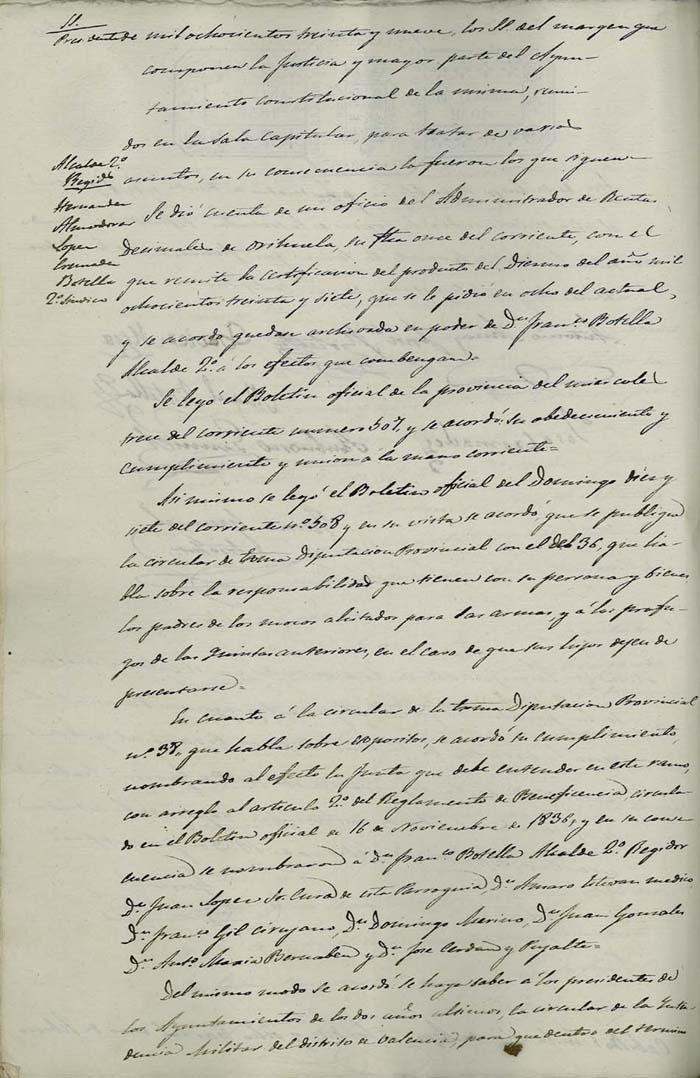 SS.
Presidente
Alcalde 2.º
Regid.s
Hernandez
Almodovar
Lopez
Cremades
Botella
2.º Sindico
de mil ochocientos treinta y nueve, los SS. del margen que
componen la Justicia y mayor parte del Ayun-
tamiento constitucional de la misma, reuni-
dos en la sala Capitular, para tratar de varios
asuntos, en su consecuencia lo fueron los que siguen=
Se dió cuenta de un oficio del Administrador de Rentas
Decimales de Orihuela, su fha once del corriente, con el
que remite la certificacion del producto del Diezmo del año mil
ochocientos treinta y siete, que se le pidió en ocho del actual,
y se acordó quedase archivada en poder de D.n Fran.co Botella
Alcalde 2.º á los efectos que combengan=
Se leyó el Boletin oficial de la provincia del miercoles
trece del corriente numero 507, y se acordó su obedecimiento y
cumplimiento y union á la mano corriente=
Asimismo se leyó el Boletin oficial del Domingo diez y
siete del corriente n.º 508 y en su vista se acordó que se publique
la circular de Exma Diputacion Provincial con el 36, que ha-
bla sobre la responsabilidad que tienen con su persona y bienes
los padres de los mozos alistados para las armas y á los profu-
gos de las Quintas anteriores, en el caso de que sus hijos dejen de
presentarse=
En cuanto á la circular de la Exma Diputacion Provincial
n.º 38, que habla sobre expositos, se acordó su cumplimiento,
nombrando al efecto la Junta que debe entender en este ramo,
con arreglo al articulo 2.º del Reglamento de Beneficencia, circula-
do en el Boletin oficial de 16 de Noviembre de 1836, y en su conse-
cuencia se nombraron á D.n Fran.co Botella Alcalde 2.º Regidor
D.n Juan Lopez Sr. Cura de esta Parroquia D.n Amaro Estevan medico
D.n Fran.co Gil cirujano, D.n Domingo Merino, D.n Juan Gonzales
D.n Ant.º Maria Bernabeu y D.n Jose Cerdan y Pujalte=
Del mismo modo se acordó se haga saber á los presidentes de
los Ayuntamientos de los dos años ultimos, la circular de la Inten-
dencia Militar del distrito de Valencia, para que dentro del termino